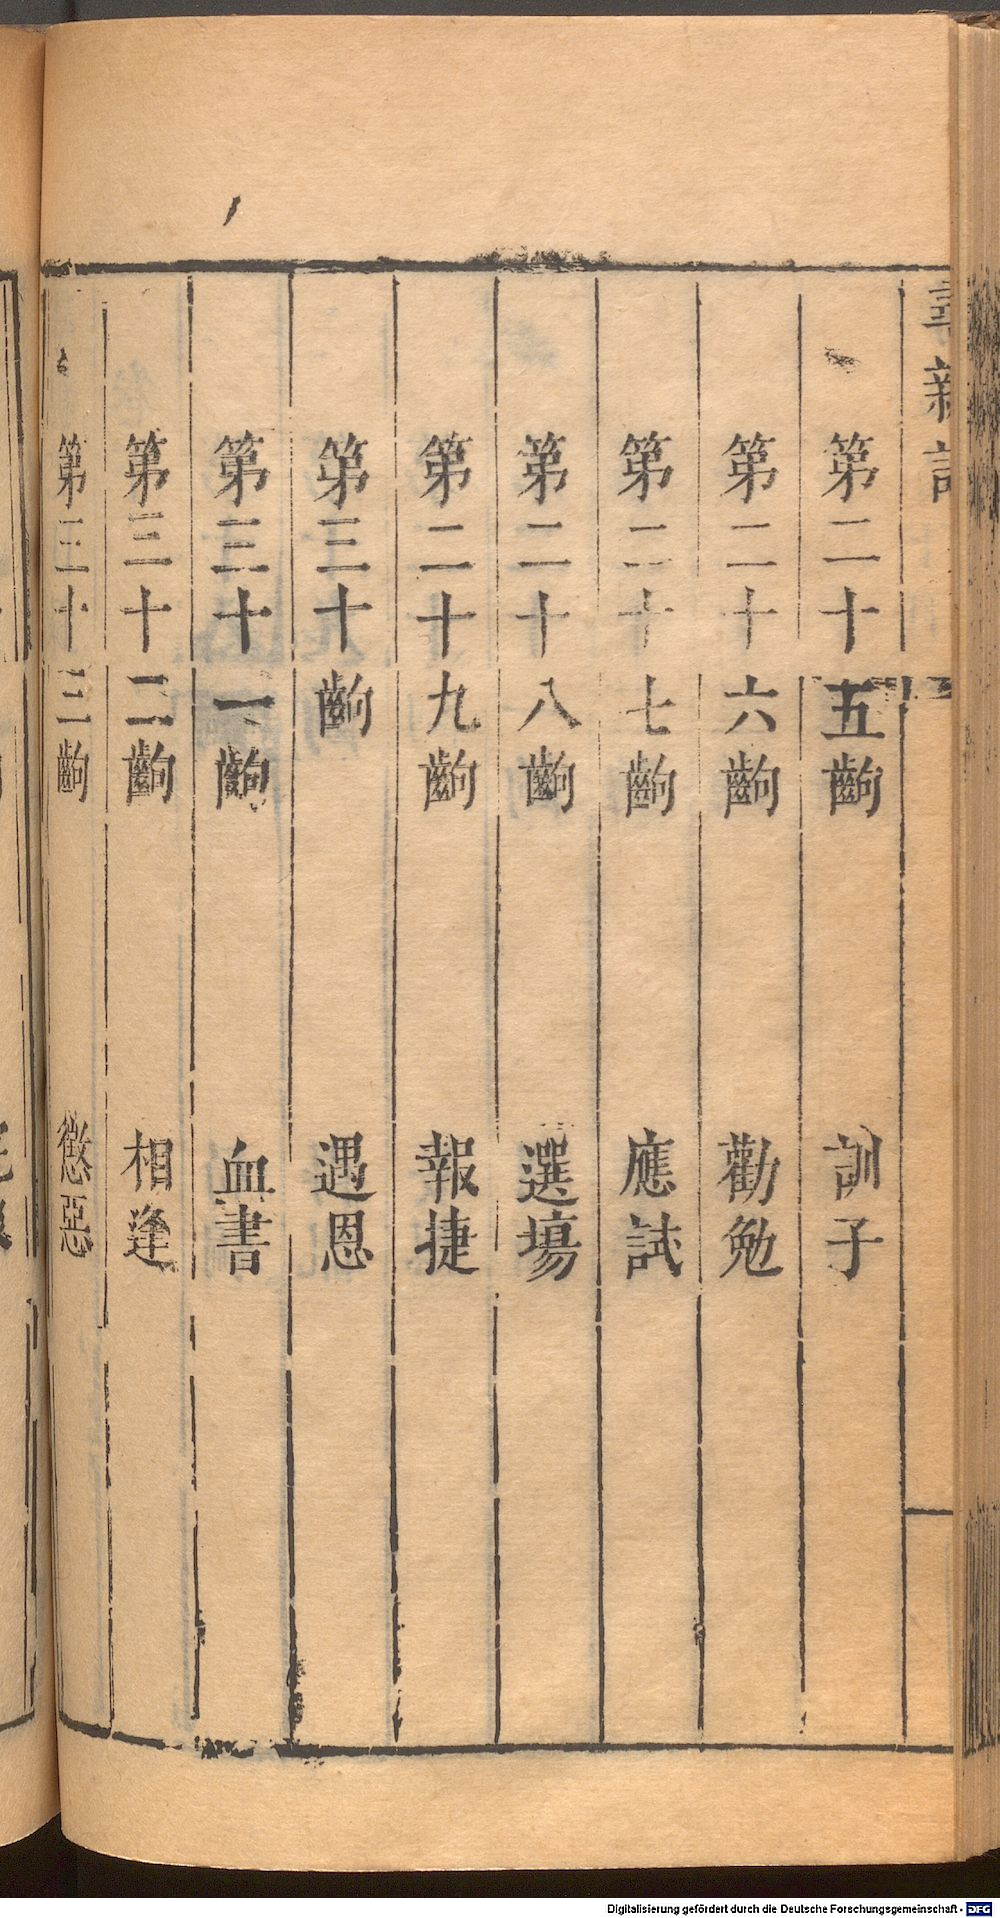 尋親記
第二十五齣 訓子
第二十六齣 勸勉
第二十七齣 應試
第二十八齣 選塲
第二十九齣 報捷
第三十齣 遇恩
第三十一齣 血書
第三十二齣 相逢
第三十三齣 懲惡
Digitalisierung gefördert durch die Deutsche Forschungsgemeinschaft - DFG